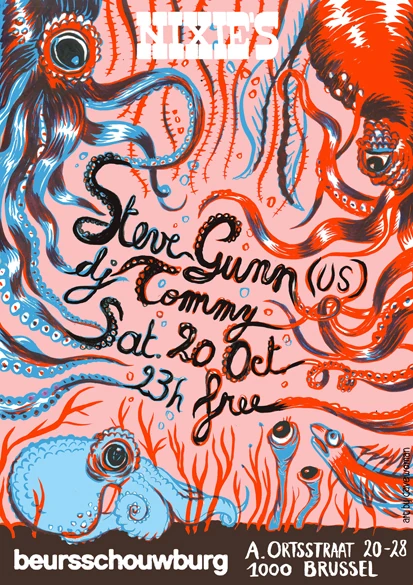 NIXIE'S
Steve Gunn (US)
dj Tommy
Sat. 20 Oct
23h free
beursschouwburg
A. ORTSSTRAAT 20-28
1000 BRUSSEL